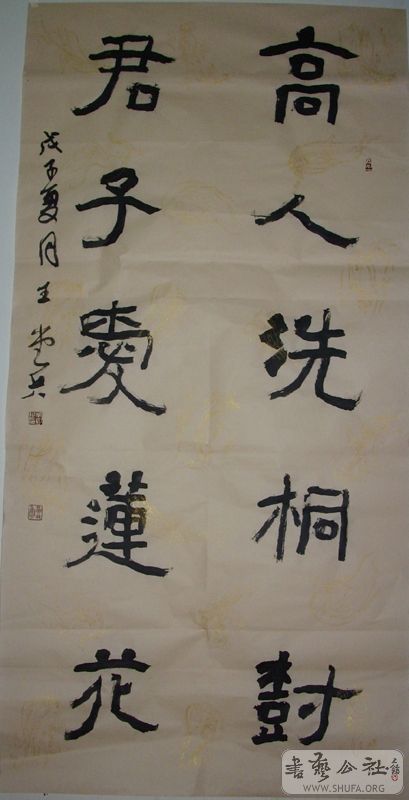 高人洗桐樹
君子愛蓮花
戊子夏月王
書藝公社
WWW.SHUFA.ORG